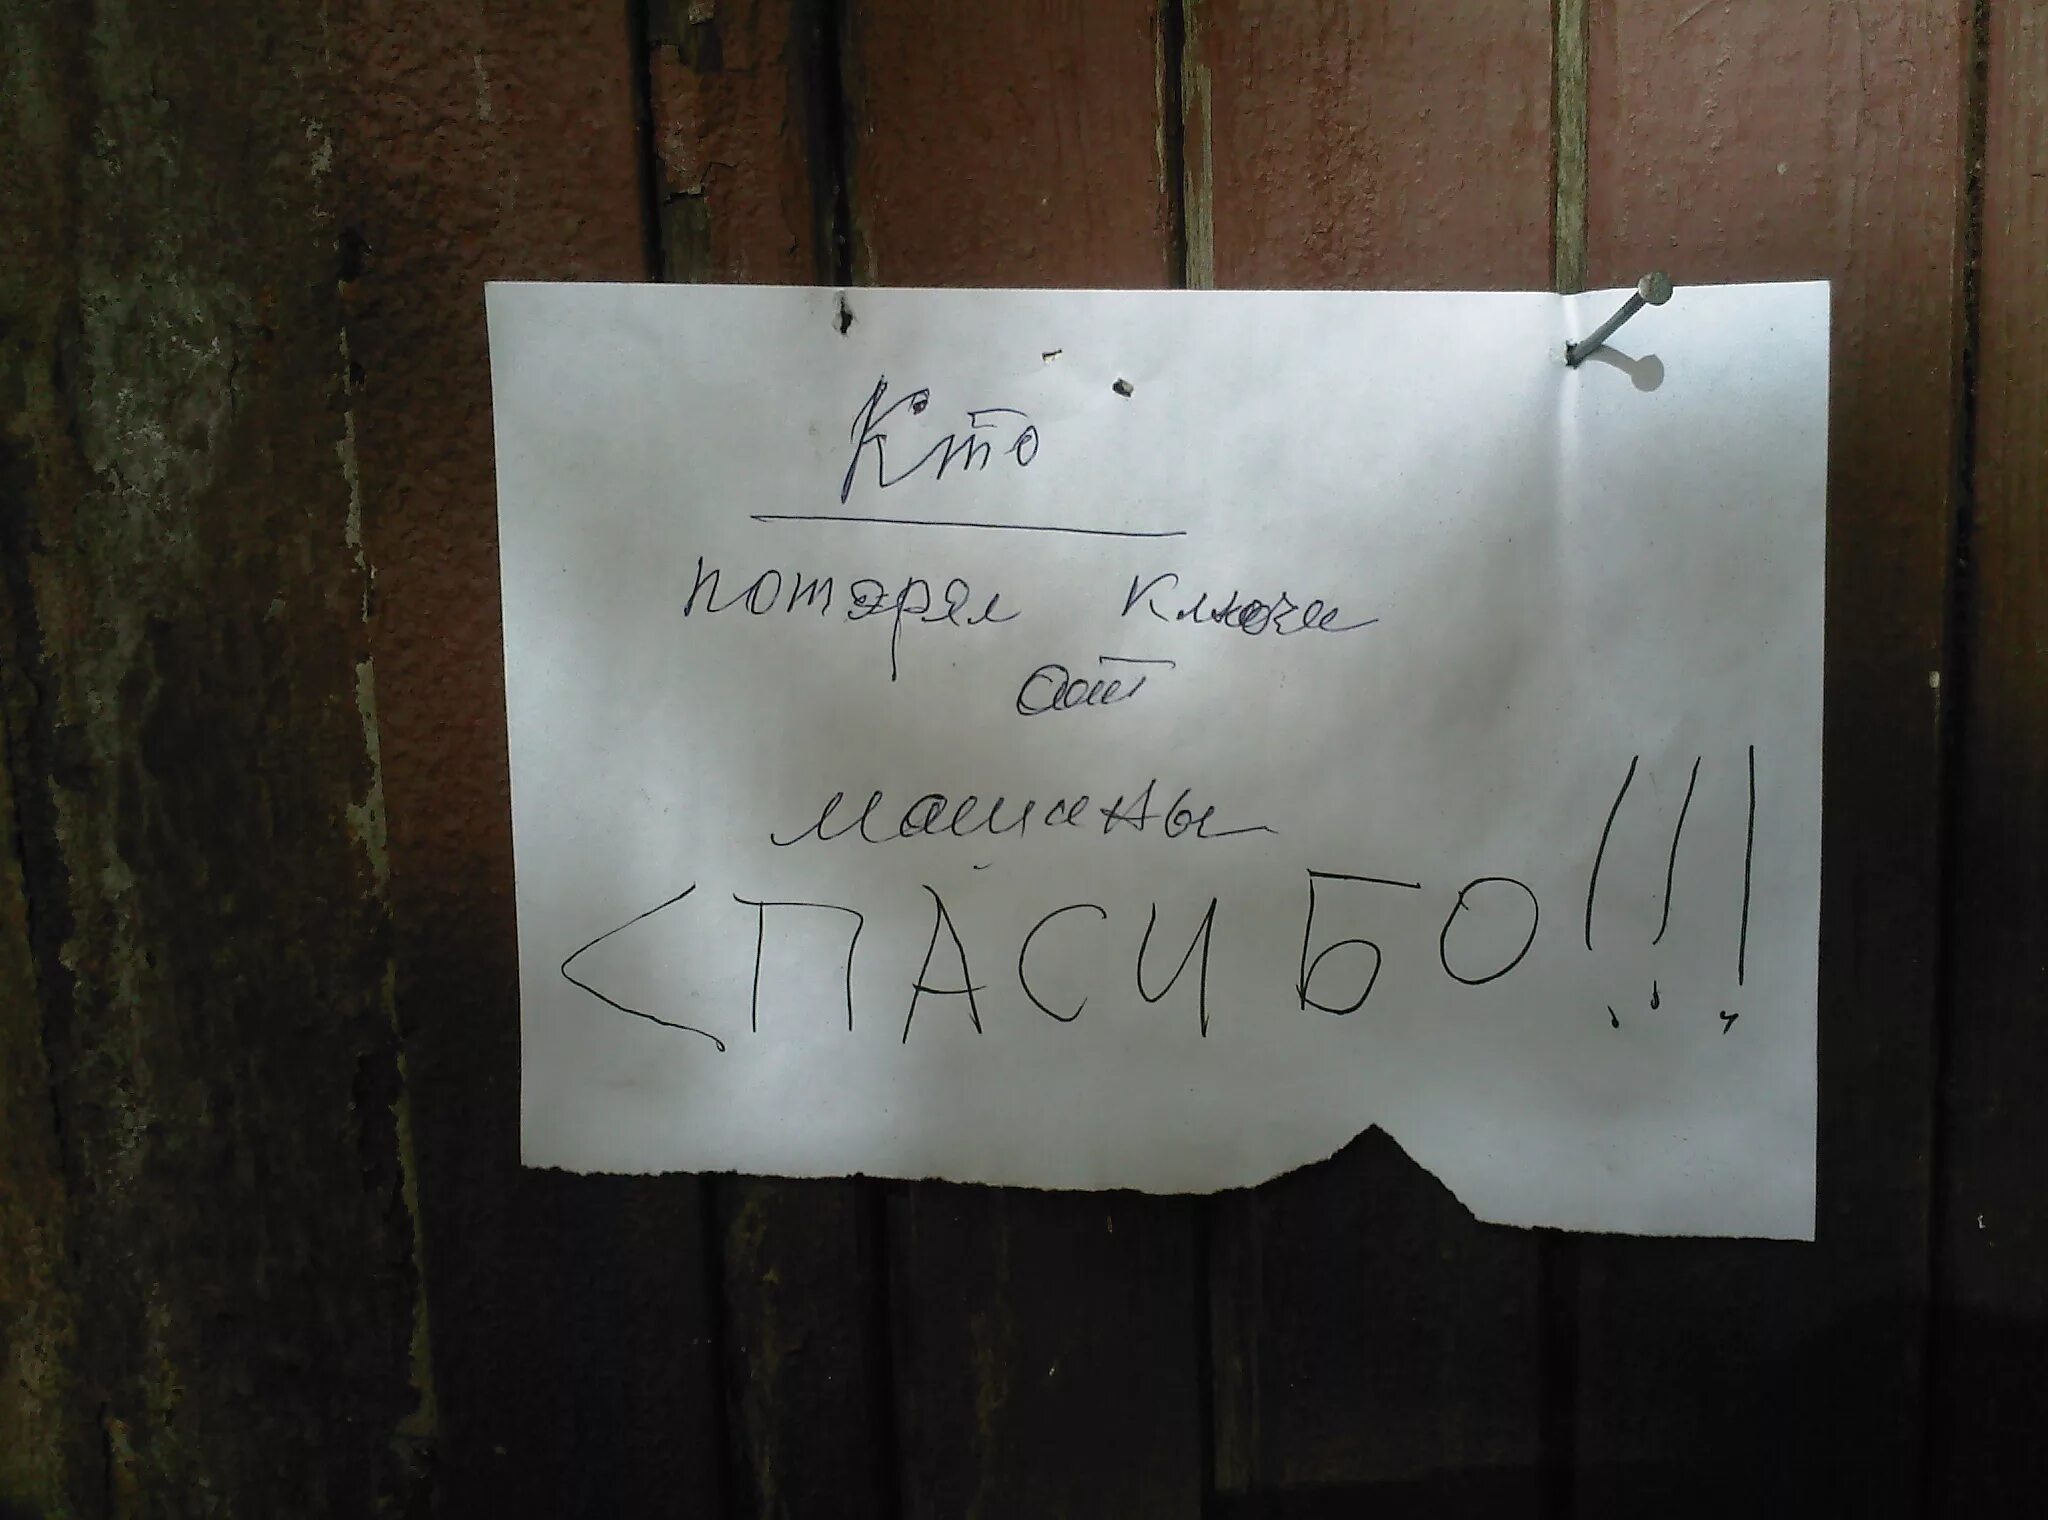 Кто
потэрял ключи
от
машины
СПАСИБО!!!